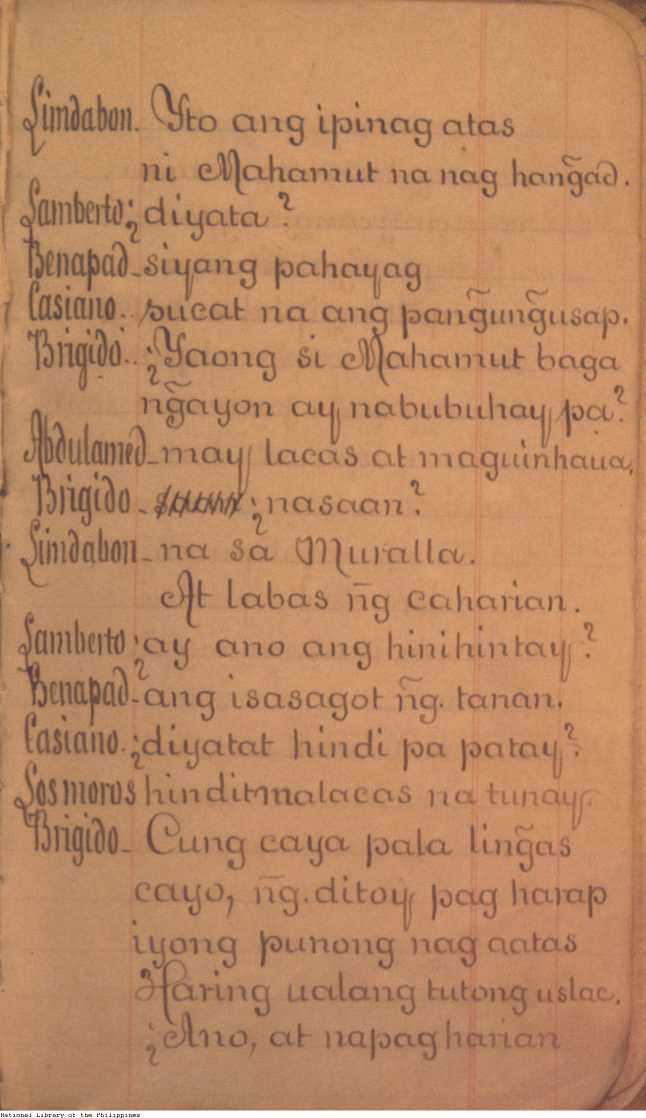 Limdabon. Yto ang ipinag atas
ni Mahamut na nag hang̃ad.
Lamberto ¿diyata?
Benapad - siyang pahayag
Casiano. sucat na ang pang̃ung̃usap.
Brigido. ¿Yaong si Mahamut baga
ng̃ayon ay nabubuhay pa?
Abdulamed - may lacas at maguinhaua,
Brigido - ¿nasaan?
Limdabon - na sa Muralla.
At labas ñg caharian.
Lamberto ¿ay ano ang hinihintay?
Benapad - ang isasagot ñg. tanan.
Casiano. ¿diyatat hindi pa patay?
Los moros hindit malacas na tunay.
Brigido - Cung caya pala ling̃as
cayo, ñg. ditoy pag harap
iyong punong nag aatas
Haring ualang tutong uslac.
¿Ano, at napagharian
National Library of the Philippines